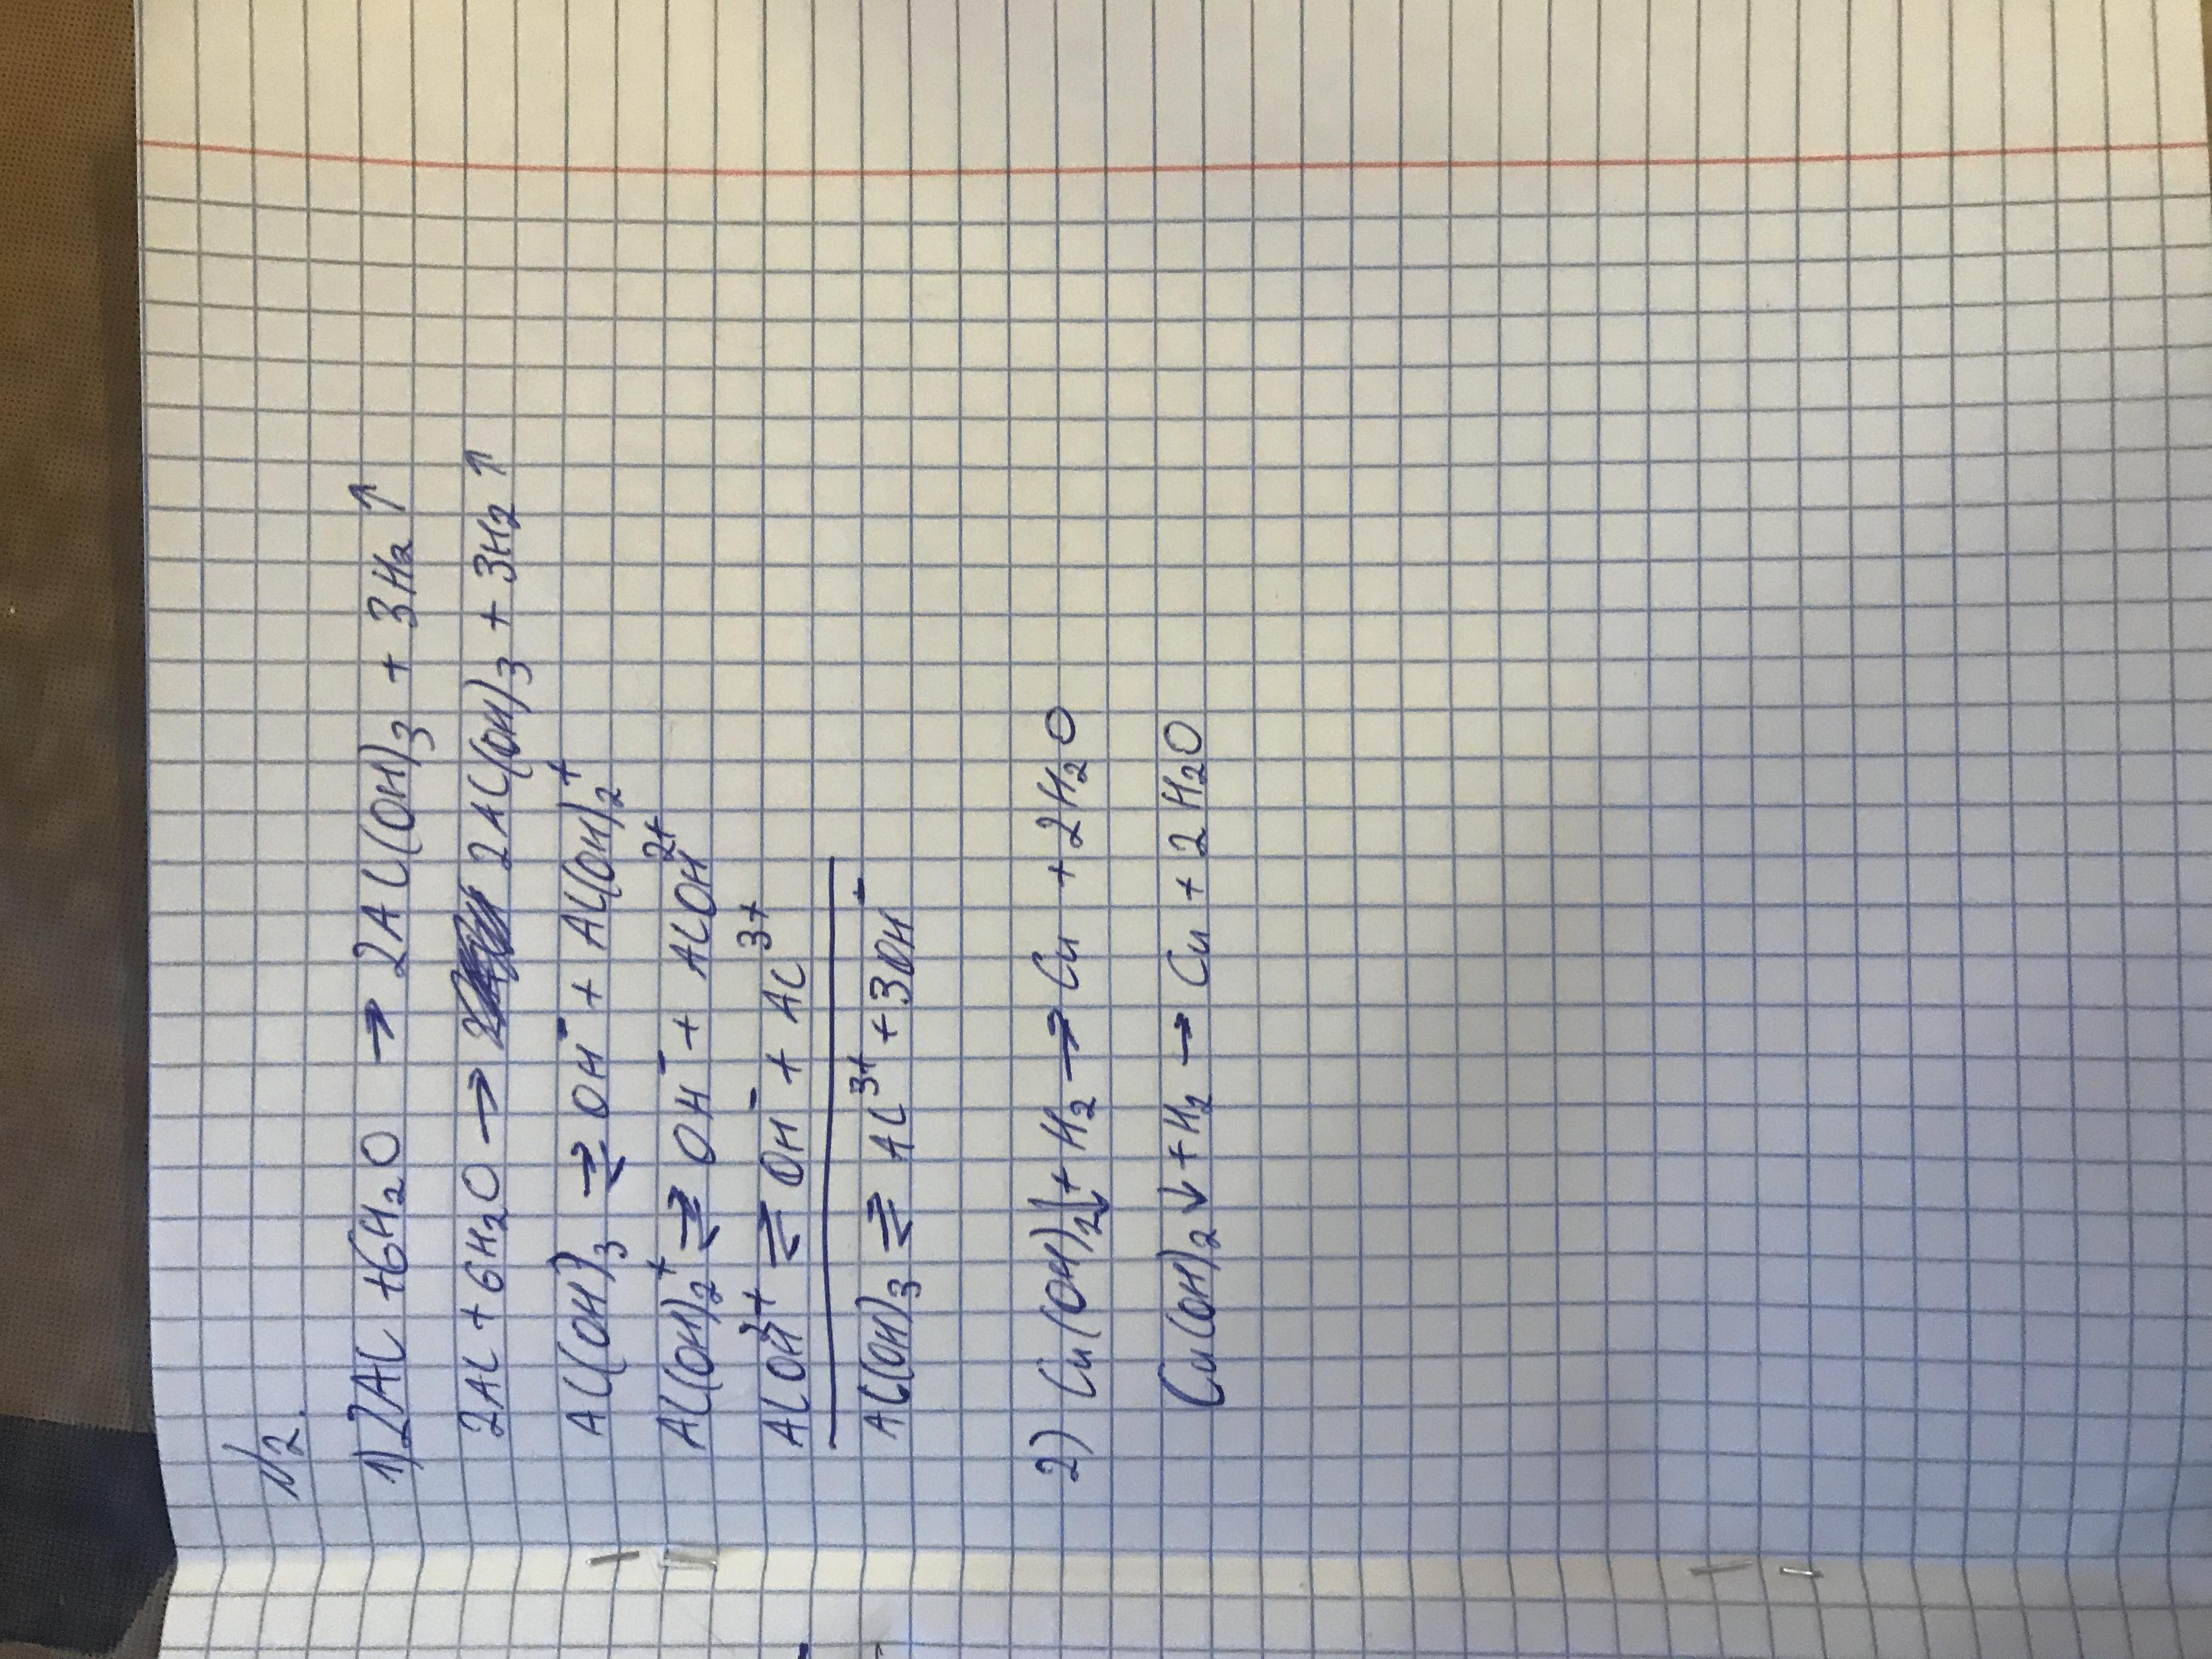 N2.
1) 2Al + 6H₂O → 2Al(OH)₃ + 3H₂↑
2Al + 6H₂O → 2Al(OH)₃ + 3H₂↑
Al(OH)₃ ⇌ OH⁻ + Al(OH)₂⁺
Al(OH)₂⁺ ⇌ OH⁻ + AlOH²⁺
AlOH²⁺ ⇌ OH⁻ + Al³⁺
Al(OH)₃ ⇌ Al³⁺ + 3OH⁻
2) Cu(OH)₂↓ + H₂ → Cu + 2H₂O
Cu(OH)₂↓ + H₂ → Cu + 2H₂O